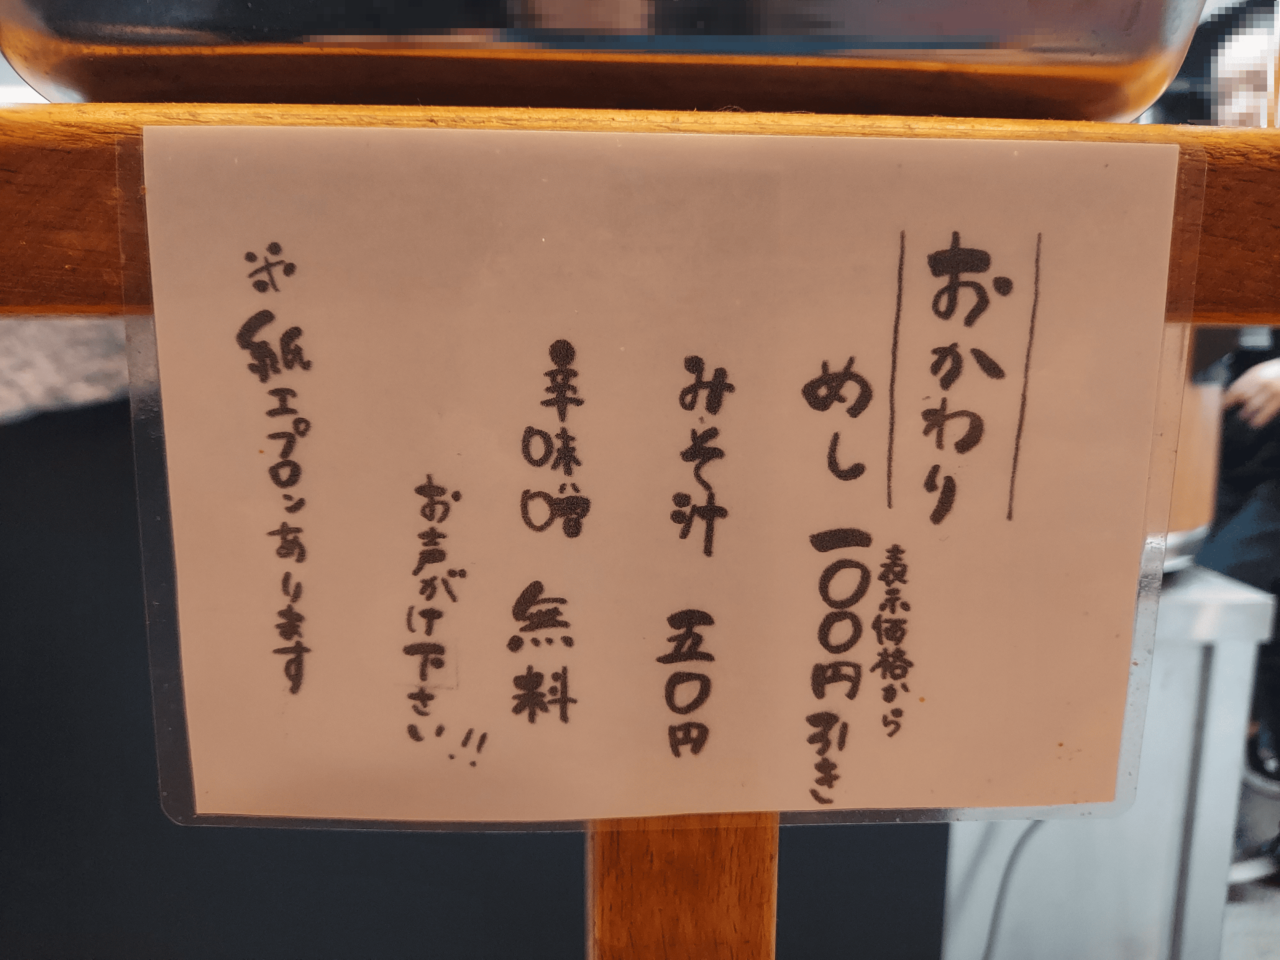 おかわり
表示価格から
めし 一〇〇円引き
みそ汁 五〇円
辛味噌 無料
お声がけ下さい!!
※紙エプロンあります